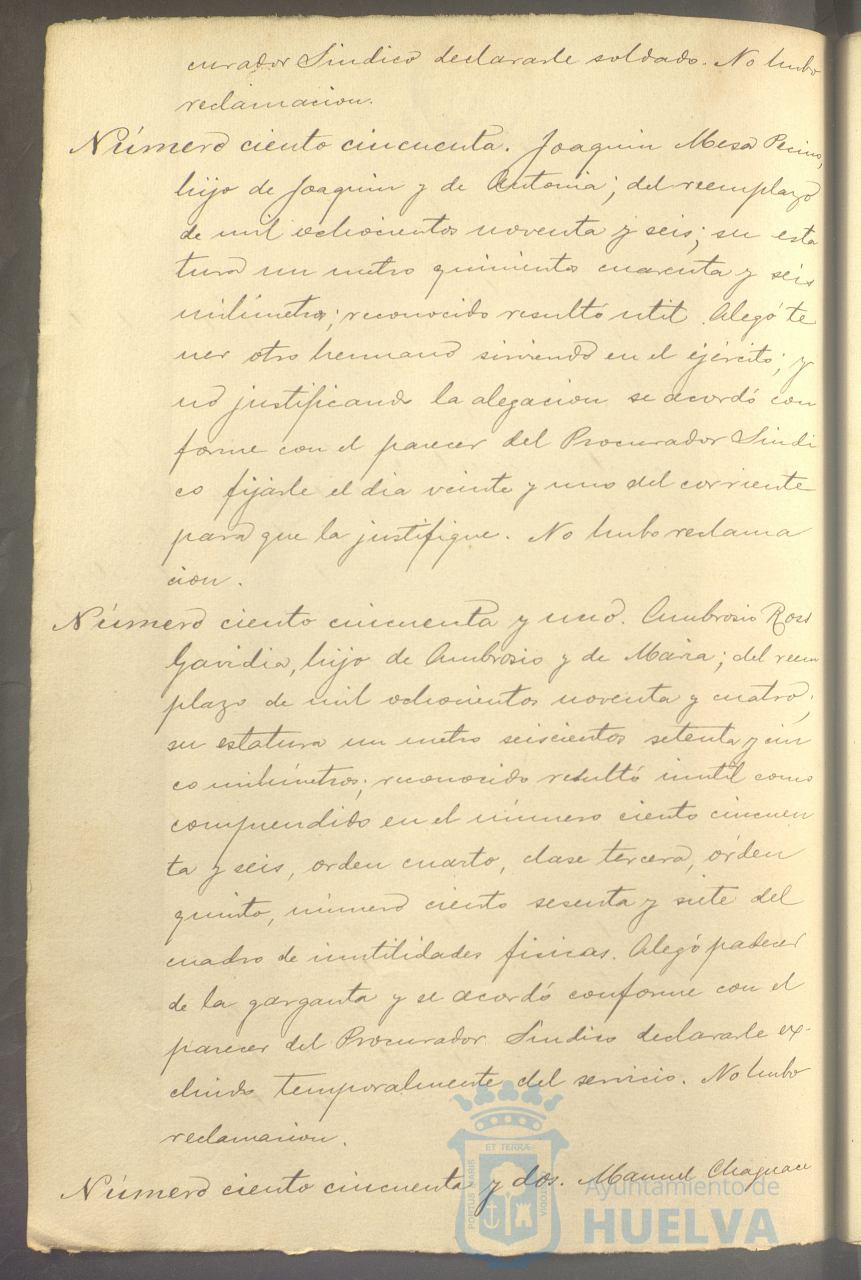 curador Sindico declararle soldado. No hubo
reclamacion.
Número ciento cincuenta. Joaquin Mesa
hijo de Joaquin y de Antonia; del reemplazo
de mil ochocientos noventa y seis; su esta
tura un metro quinientos cuarenta y seis
milímetros; reconocido resultó util. Alegó te
ner otro hermano sirviendo en el ejército; y
no justificando la alegacion se acordó con
forme con el parecer del Procurador Sindi
co fijarle el dia veinte y uno del corriente
para que la justifique. No hubo reclama
cion.
Número ciento cincuenta y uno. Ambrosio
Gavidia, hijo de Ambrosio y de Maria; del reem
plazo de mil ochocientos noventa y cuatro;
su estatura un metro seiscientos setenta y cin
co milímetros; reconocido resultó inutil como
comprendido en el número ciento cincuen
ta y seis, orden cuarto, clase tercera, orden
quinto, número ciento sesenta y siete del
cuadro de inutilidades fisicas. Alegó padecer
de la garganta y se acordó conforme con el
parecer del Procurador Sindico declararle ex-
cluido temporalmente del servicio. No hubo
reclamacion.
Número ciento cincuenta y dos. Manuel
ET TERRÆ
PORTUS MARIS
CUSTODIA
Ayuntamiento de
HUELVA